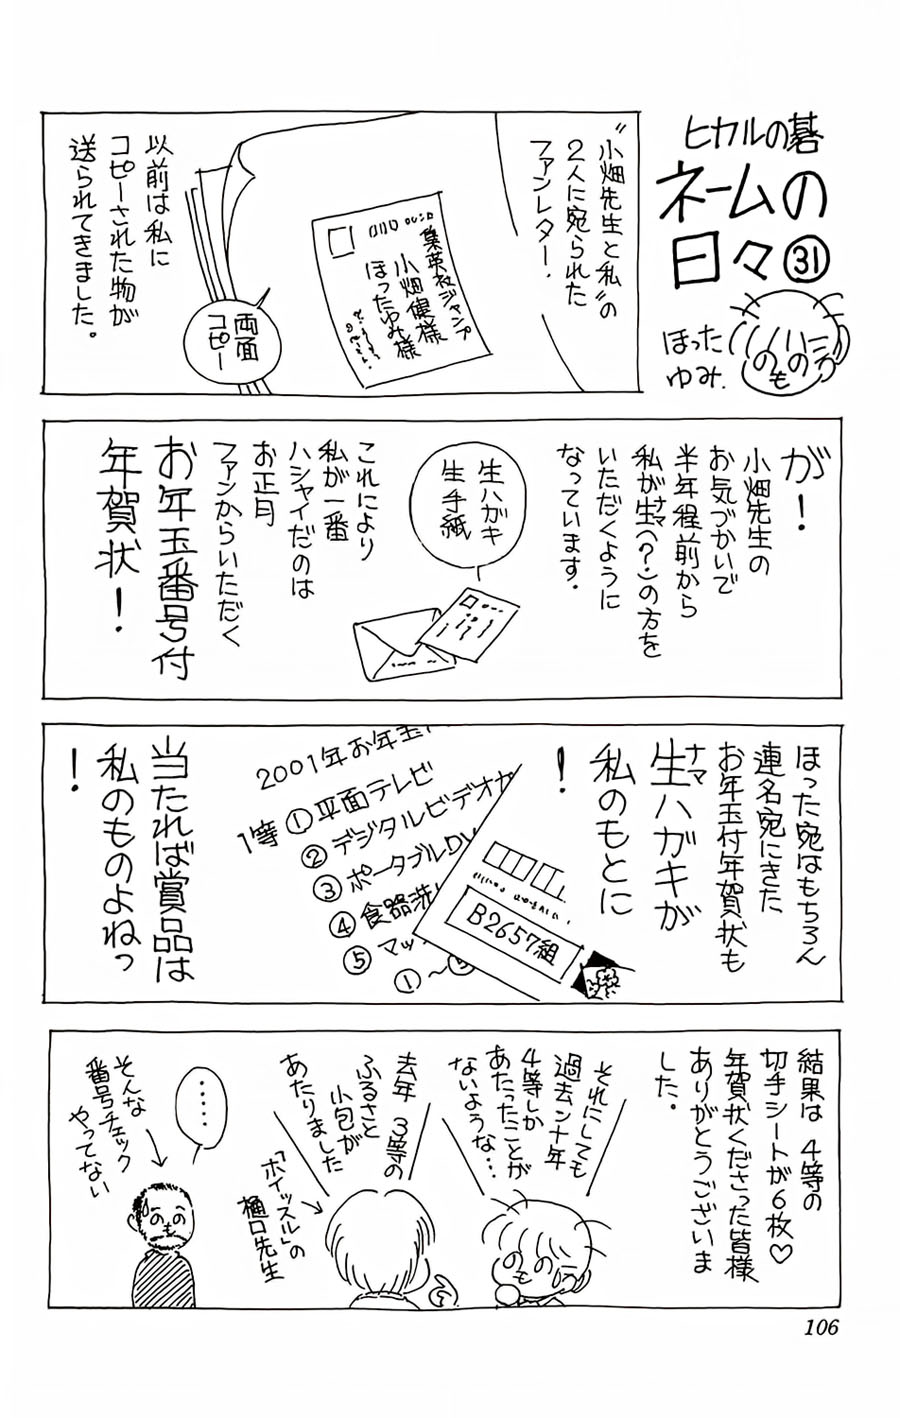 ヒカルの碁
ネームの
日々㉛
ほった
ゆみ.
〝小畑先生と私〟の
2人に宛られた
ファンレター.
集英社ジャンプ
小畑健様
ほったゆみ様
両面
コピー
以前は私に
コピーされた物が
送られてきました。
が!
小畑先生の
お気づかいで
半年程前から
私が生(?)の方を
ナマ
いただくように
なっています.
生ハガキ
生手紙
これにより
私が一番
ハシャイだのは
お正月
ファンからいただく
お年玉番号付
年賀状!
ほった宛はもちろん
連名宛にきた
お年玉付年賀状も
生ハガキが
ナマ
私のもとに
!
2001年お年玉
1等①平面テレビ
②デジタルビデオカ
③ポータブルDV
④食器洗
⑤マッ
①〜⑤
B2657組
当たれば賞品は
私のものよねっ
!
結果は 4等の
切手シートが6枚♡
年賀状くださった皆様
ありがとうございま
した.
それにしても
過去ン十年
4等しか
あたったことが
ないような…
去年 3等の
ふるさと
小包が
あたりました
「ホイッスル」の
樋口先生
‥‥‥
そんな
番号チェック
やってない
106